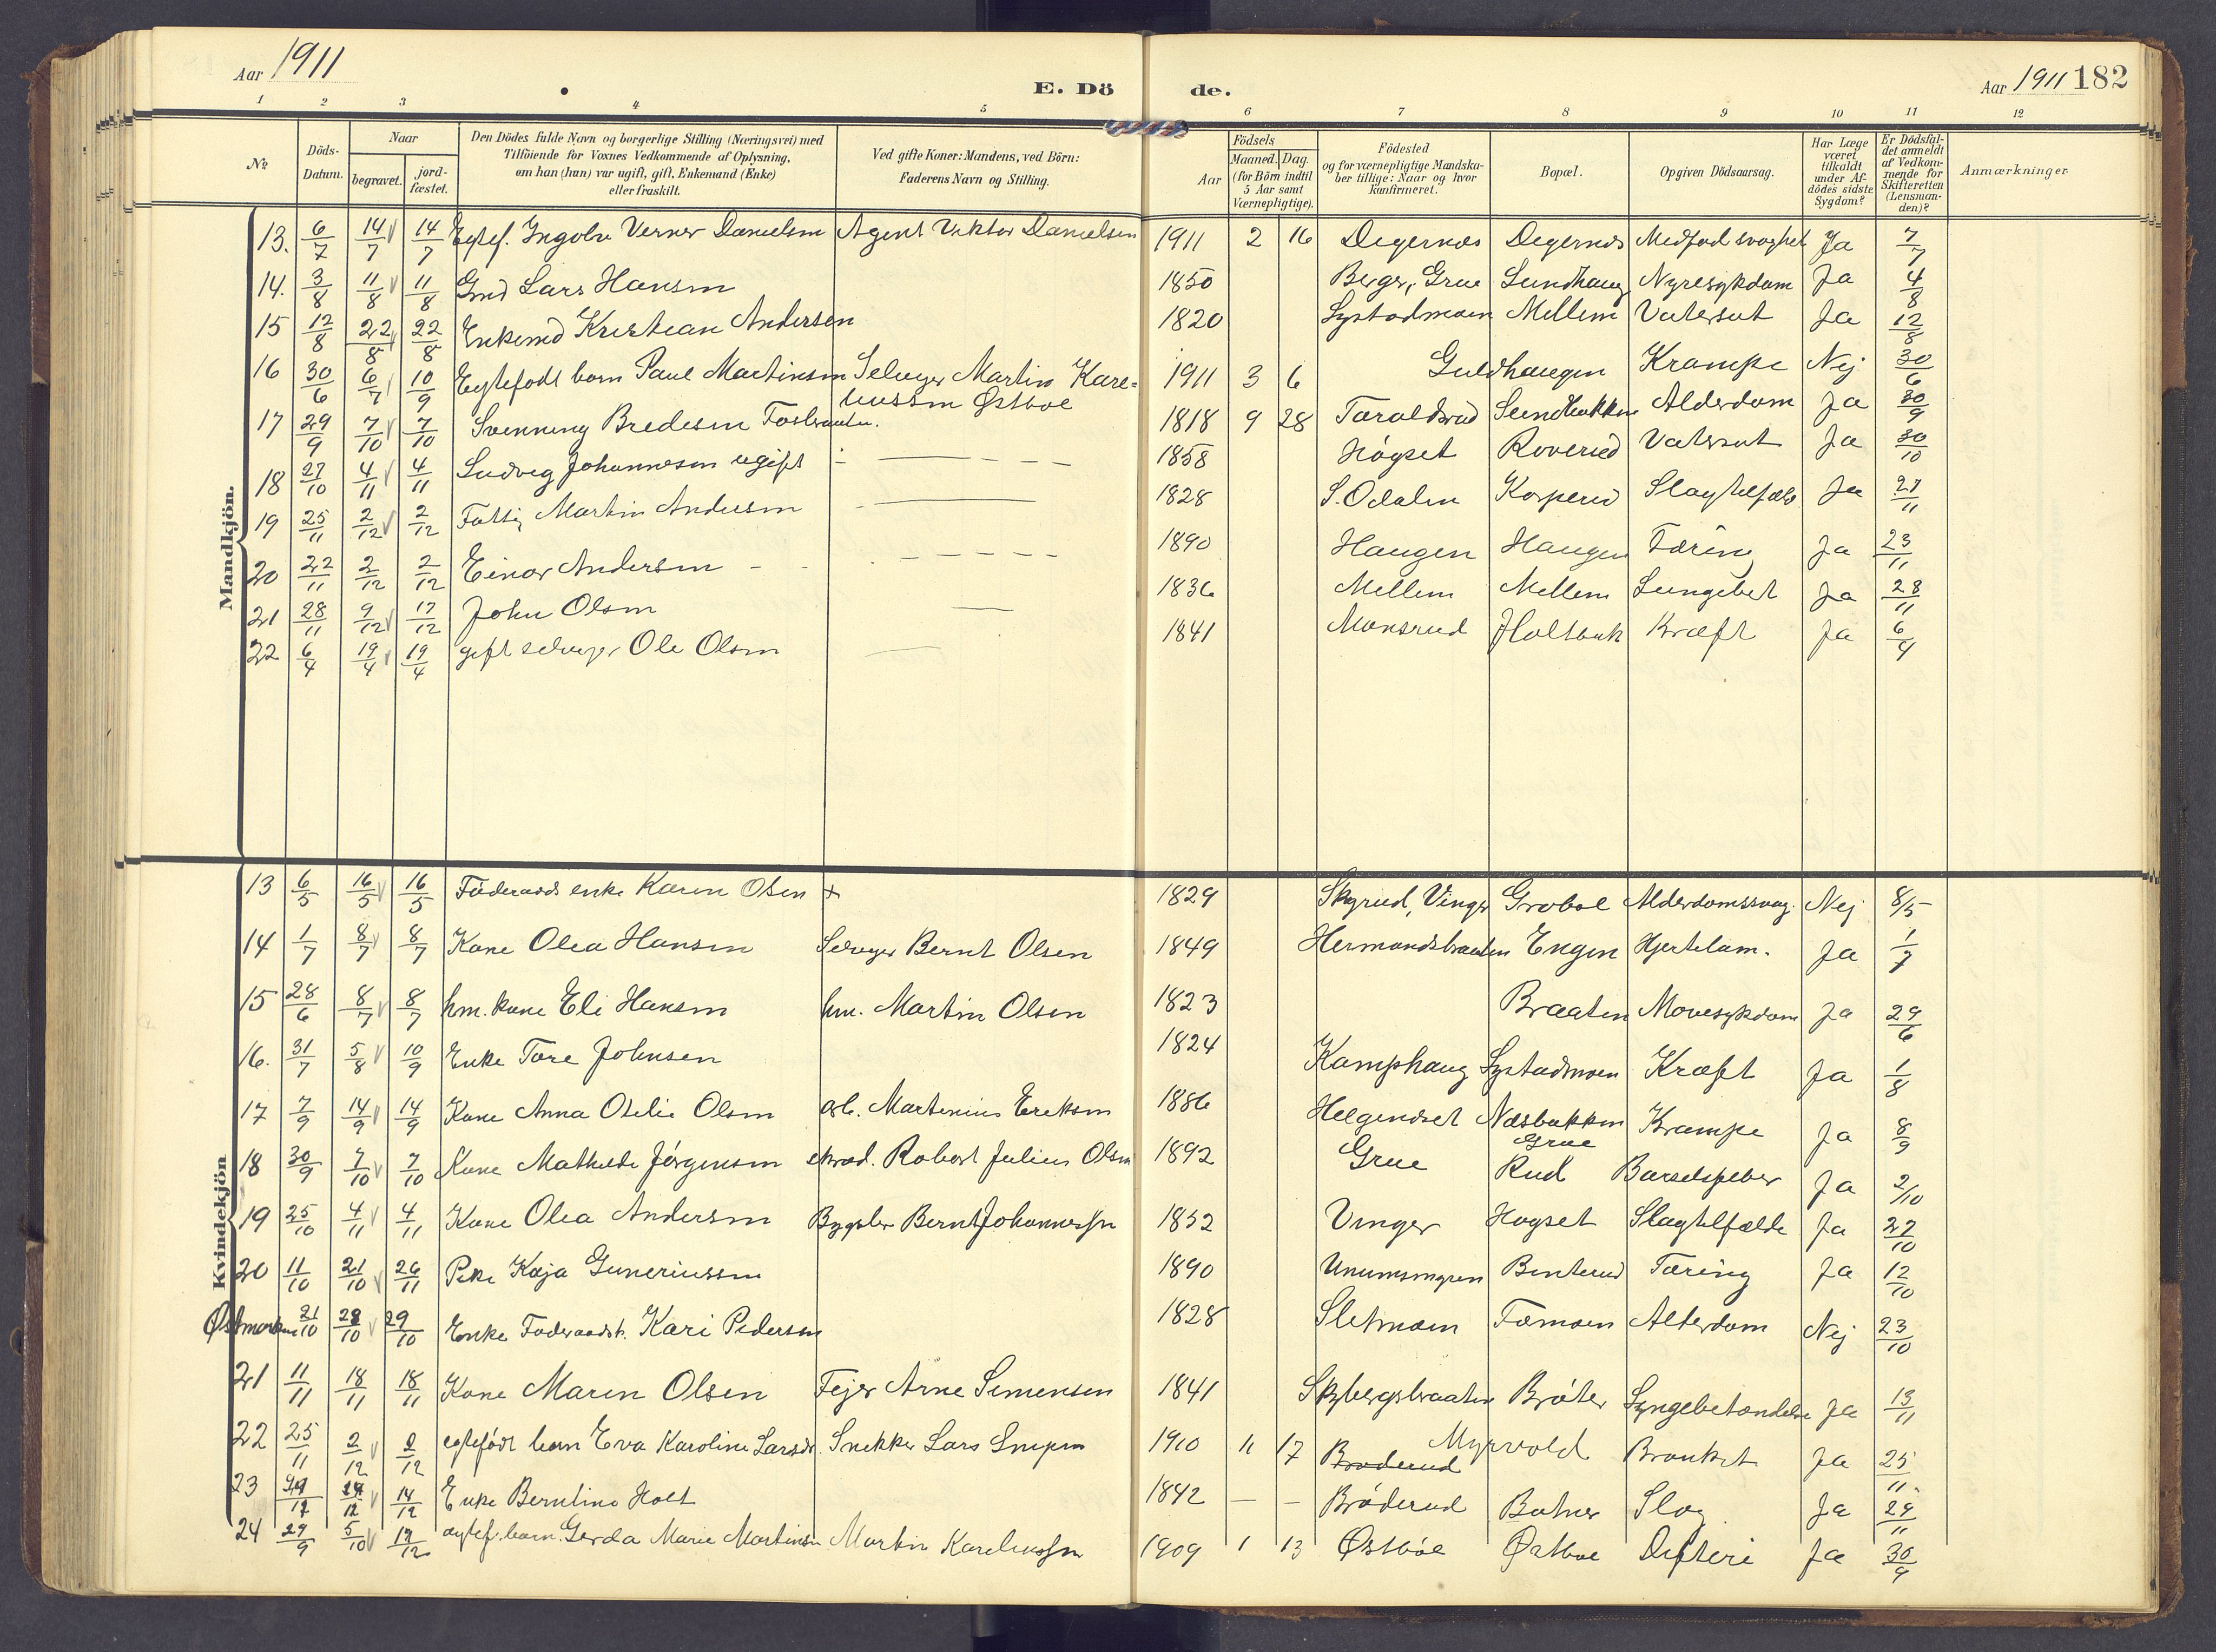 Aar 1911
E. Dö
de.
Aar 1911 182
1 2 3 4 5 6 7 8 9 10 11 12
No
Döds-Datum.
Naar
begravet.
jord-fæstet.
Den Dödes fulde Navn og borgerlige Stilling (Næringsvei) med
Tilföiende for Voxnes Vedkommende af Oplysning,
om han (hun) var ugift, gift, Enkemand (Enke)
eller fraskilt.
Ved gifte Koner: Mandens, ved Börn:
Faderens Navn og Stilling.
Födsels
Aar
Maaned. Dag.
(for Börn indtil
5 Aar samt
Værnepligtige).
Födested
og for værnepligtige Mandska-
ber tillige: Naar og hvor
konfirmeret.
Bopæl.
Opgiven Dödsaarsag.
Har Læge
været
tilkaldt
under Af-
dödes sidste
Sygdom?
Er Dödsfal-
det anmeldt
af Vedkom-
mende for
Skifteretten
(Lensman-
den)?
Anmærkninger.
Mandkjön.
13. 6/7 14/7 14/7 Egtef. Ingolv Verner Danielsen Agent Viktor Danielsen 1911 2 16 Degernes Degernes Medfød svaghet Ja 7/7
14. 3/8 11/8 11/8 Gmd Lars Hansen 1850 Berger, Grue Lundhaug Nyresykdom Ja 4/8
15 12/8 22/8 22/8 Enkemd Kristian Andersen 1820 Lystadmoen Mellem Vatersot Ja 12/8
16 30/6 6/7 10/9 Egtefødt barn Paul Martinsen Selveger Martin Kare-
liussen Østboe 1911 3 6 Guldhaugen Krampe Nej 30/6
17 29/9 7/10 7/10 Svenning Bredesen 1818 9 28 Taraldsrud Sundbakken Alderdom Ja 30/9
18 27/10 4/11 4/11 Ludvig Johannesen ugift 1858 Høgset Roverud Vatersot Ja 30/10
19 25/11 2/12 2/12 Fattig Martin Andersen 1828 S. Odalen Korperud Slagtilfæld Ja 27/11
20 22/11 2/12 2/12 Einar Andersen 1890 Haugen Haugen Tæring Ja 23/11
21 28/11 9/12 17/12 John Olsen 1836 Mellem Mellem Lungebet Ja 28/11
22 6/4 19/4 19/4 gift selveger Ole Olsen 1841 Monsrud Holtbak Kræft Ja 6/4
Kvindekjön
13 6/5 16/5 16/5 Føderaads enke Karen Olsen + 1829 Skyrud, Vinger Grøboe Alderdomssvag. Nej 8/5
14 1/7 8/7 8/7 Kone Olea Hansen Selveger Bernt Olsen 1849 Hermandsbraaten Engen Hjertelam. Ja 1/7
15 28/6 8/7 8/7 hm. kone Eli Hansen hm. Martin Olsen 1823 Braaten Mavesykdom Ja 29/6
16. 31/7 5/8 10/9 Enke Tore Johnsen 1824 Kamphaug Lystadmoen Kræft Ja 1/8
17 7/9 14/9 14/9 Kone Anna Otilie Olsen arb. Martinius Eriksen 1886 Helgeneset Næsbakken
Grue Krampe Ja 8/9
18 30/9 7/10 7/10 Kone Mathilde Jörgensen skræd. Robert Julius Olsen 1892 Grue Rud Barselfeber Ja 2/10
19 25/10 4/11 4/11 Kone Olea Andersen Bygsler Bernt Johannessen 1852 Vinger Hogset Slagtilfælde Ja 27/10
20 11/10 21/10 26/11 Pike Kaja Gunerиussen 1890 Binterud Tæring Ja 12/10
Østmarken 21/10 28/10 29/10 Enke Føderaadsk. Kari Pedersen 1828 Sletmoen Tømoen Alderdom Nej 23/10
21 11/11 18/11 18/11 Kone Maren Olsen Fejer Arne Simensen 1841 Skybergsbraaten Bröter Lungebetændelse Ja 13/11
22 25/11 2/12 2/12 egtefødt barn Eva Karoline Larsdr. Snekker Lars 1910 11 17 Broderud Myrvold Bronkit Ja 25/11
23 12 14/12 Enke Berntine Holt 1842 – – Bröderud Botner Slag Ja 29/11
24 29/9 5/10 17/12 egtef. barn Gerda Marie Martinsen Martin Kareliussen 1909 1 13 Østböe Østboe Difteri Ja 30/9